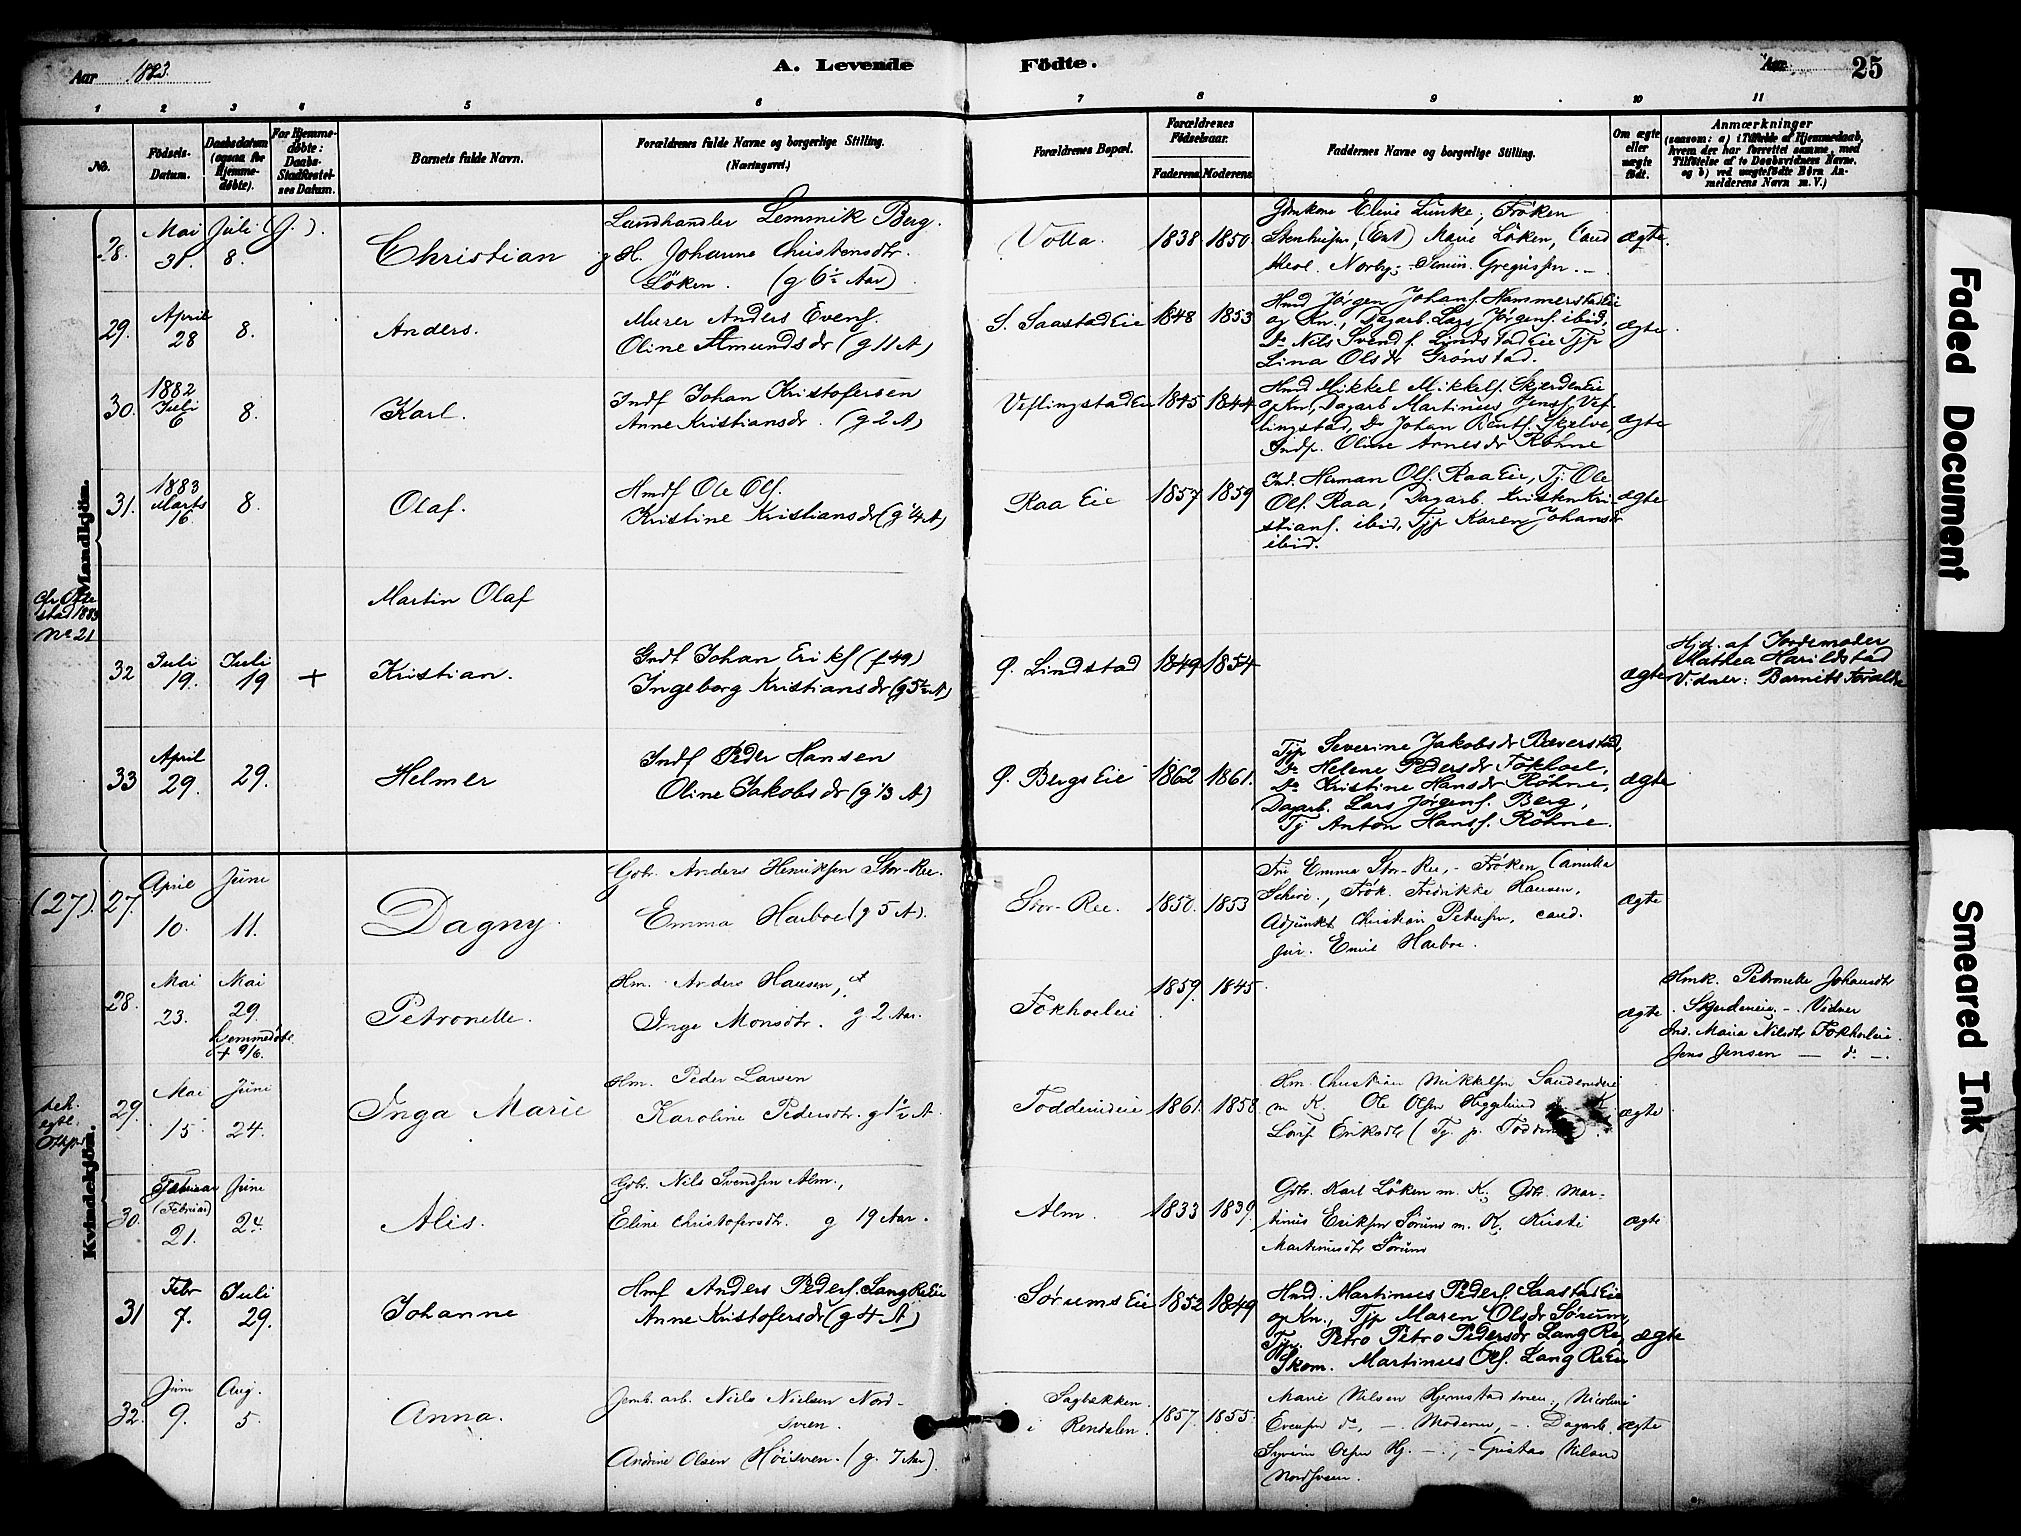 Aar 1883.
A. Levende Födte.
Aar
25
1 2 3 4 5 6 7 8 9 10 11
No.
Födsels-Datum.
Daabsdatum (ogsaa for Hjemme-døbte).
For Hjemme-døbte: Daabs-Stadfæstel-ses Datum.
Barnets fulde Navn.
Forældrenes fulde Navne og borgerlige Stilling. (Næringsvei.)
Forældrenes Bopæl.
Forældrenes Fødselsaar.
Faderens Moderens
Faddernes Navne og borgerlige Stilling.
Om ægte eller uægte født.
Anmærkninger
(saasom: a) i Tilfælde af Hjemmedaab,
hvem der har forrettet samme, med
Tilføielse af to Daabsvidners Navne,
og b) ved uægtefødte Børn An-
melderens Navn m. V.)
Mandkjön.
28. Mai 31. Juli 8. (J.)
Christian
Landhandler Lemmik Berg.
g H. Johanne Christensdtr.
Löken. (g 6½ Aar)
Volla. 1838 1850.
Eline Lunke, Fröken
Marie Löken, Cand
theol. Norby, Gregusen.
ægte.
29. April 28 8.
Anders.
Murer Anders Evens.
Oline Amundsdr (g 11 A)
S. Saastad Eie 1848 1853
Hmd Jørgen Johans. Hammerstad Eie
og Kn., Dagarb. Lars Jørgens. ibid,
Do Nils Svends. Lindstad Eie Tjp
Lina Olsdr Grönstad.
ægte.
30. 1882 Juli 6 8.
Karl.
Indf Johan Kristofersen
Anne Kristiansdr. (g 2 A)
Veflingstad Eie 1845 1844
Hmd Mikkel Mikkels. Skjerden Eie
og Kn., Dagarb Martinus Jens. Vef-
lingstad, Do Johan Bents. Skjelve,
Indp. Oline Arnesdr Röhne
ægte
31. 1883 Marts 16 8.
Olaf.
Hmdf Ole Ols.
Kristine Kristiansdr (g ¼ A)
Raa Eie 1857 1859
Ind. Herman Ols. Raa Eie, Tj. Ole
Ols. Raa, Dagarb. Kristen Kri-
stians. ibid, Tjp Karen Johansdr
ibid.
ægte
stad 1883
No 21
Martin Olaf
32 Juli 19. Juli 19 +
Kristian.
Indf Johan Eriks (f 49)
Ingeborg Kristiansdr (g 5½ A)
Ø. Lindstad 1849 1854
ægte
Hjd. af Jordemoder
Mathea Harildstad
Vidner: Barnets Foreldre
33 April 29. 29.
Helmer
Indf Peder Hansen
Oline Jakobsdr (g ⅓ A)
Ø. Bergs Eie 1862 1861.
Tjp Severine Jakobsdr Bæverstad,
Do Helene Pedersdr Fokhoel,
Do Kristine Hansdr Röhne,
Dagarb. Lars Jørgens. Berg,
Tj Anton Hans. Röhne.
ægte
Kvindekjön.
(27). 27. April 10. Juni 11.
Dagny.
Gbr. Anders Henriksen Stor-Ree.
Emma Harboe (g 5 A).
Stor-Ree. 1850. 1853
Fru Emma Stor-Ree, Fröken Camilla
Frøk. Fredrikke Hansen,
Adjunkt Christian Petersen, cand.
jur. Emil Harboe.
ægte
28. Mai 23. Mai 29. hjemmedöbt + 9/6.
Petronelle.
Hm. Anders Hansen,
Inge Monsdtr. g. 2 Aar.
Fokhoeleie 1859. 1845.
ægte
Hmk. Petronelle Johansdtr
Skjerdeneie. Vidner
Ind. Maria Nilsdtr Fokhoeleie.
Jens Jensen — d. —.
29. Mai 15 Juni 24.
Inga Marie
Hm. Peder Larsen
Karoline Pedersdtr. g 1½ A.
Toddeneie 1861. 1858.
Hm. Christian Mikkelsen
m K. Ole Olsen K
Eriksdtr (Tj. p.
ægte
30. Februar (Februar) 21. Juni 24.
Alis.
Gbr. Nils Svendsen Alm.,
Eline Christofersdtr. g 19 Aar.
Alm. 1833 1839.
Gbr. Karl Löken m. K; Gbr. Mar-
tinus Eriksen Sörum m. K. Kirsti
Martinusdtr Sörum
ægte
31 Febr 7. Juli 29.
Johanne
Hmf Anders Peders. Lang Re Eie
Anne Kristofersdr (g 4 A)
Sørums Eie 1852 1849
Hmd. Martinus Peders. Saastad Eie
og Kn., Tjp Maren Olsdr Sørum,
Tjp. Petro Petro Pedersdr Lang Re,
Skom. Martinus Ols. Lang Re Eie
ægte
32. Juni 9. Aug. 5.
Anna.
Jernb. arb. Niels Nielsen Nord-
sveen.
Andrine Olsen Höisveen. (g. 7 Aar).
Sagbakken i Rendalen. 1857. 1855.
Marie Nilsen Hjernstad sveen, Nicoline
Evensen do, — Moderen, —. Dagarb.
Olsen Hj. —, Gustav Nilsen
Nordsveen.
ægte
Faded Document
Smeared Ink